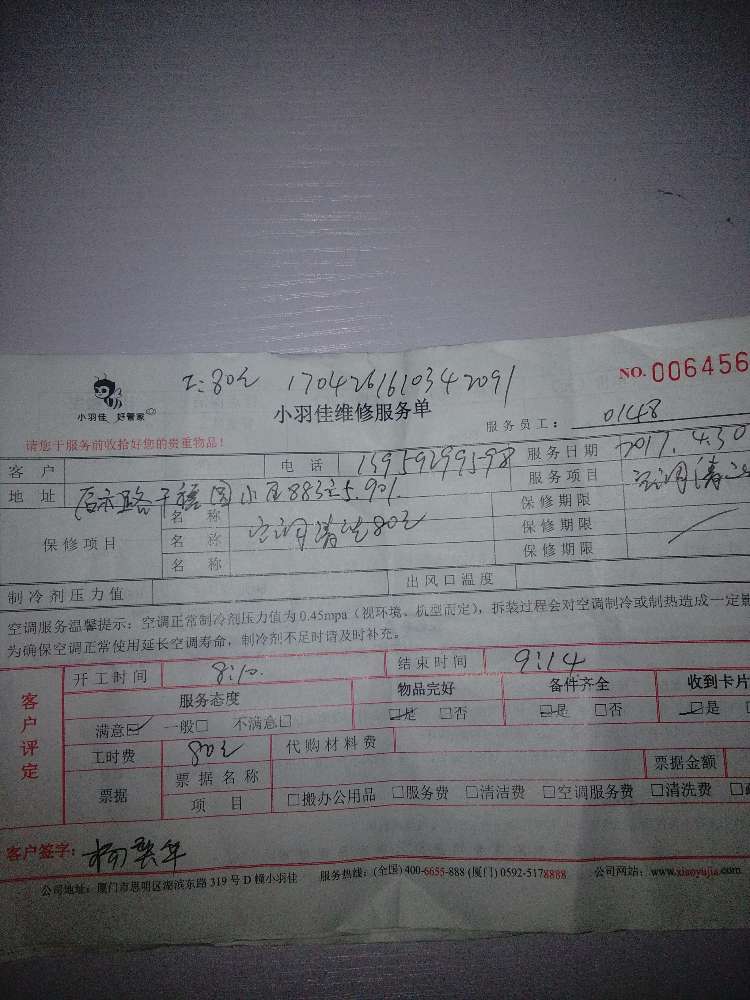 工:80元 1704261610342091
NO. 006456
小羽佳 好管家
小羽佳维修服务单
服务员工: 0148
请您于服务前收拾好您的贵重物品!
客 户 电 话 13959299598 服务日期 2017.4.30
地 址 小区883之5.901. 服务项目 空调清洗
保修项目 名 称 空调清洗80元 保修期限
名 称 保修期限
名 称 保修期限
制冷剂压力值 出风口温度
空调服务温馨提示:空调正常制冷剂压力值为 0.45mpa(视环境、机型而定),拆装过程会对空调制冷或制热造成一定
为确保空调正常使用延长空调寿命,制冷剂不足时请及时补充。
客户评定
开工时间 8:10. 结束时间 9:14
服务态度 物品完好 备件齐全 收到卡片
满意☑ 一般□ 不满意□ ☑是 □否 ☑是 □否 ☑是
工时费 80元 代购材料费
票据 票据名称 票据金额
项 目 □搬办公用品 □服务费 □清洁费 □空调服务费 □清洗费
客户签字:
公司地址:厦门市思明区湖滨东路 319 号 D 幢小羽佳 服务热线:(全国) 400-6655-888 (厦门) 0592-5178888 公司网站:www.xiaoyujia.com